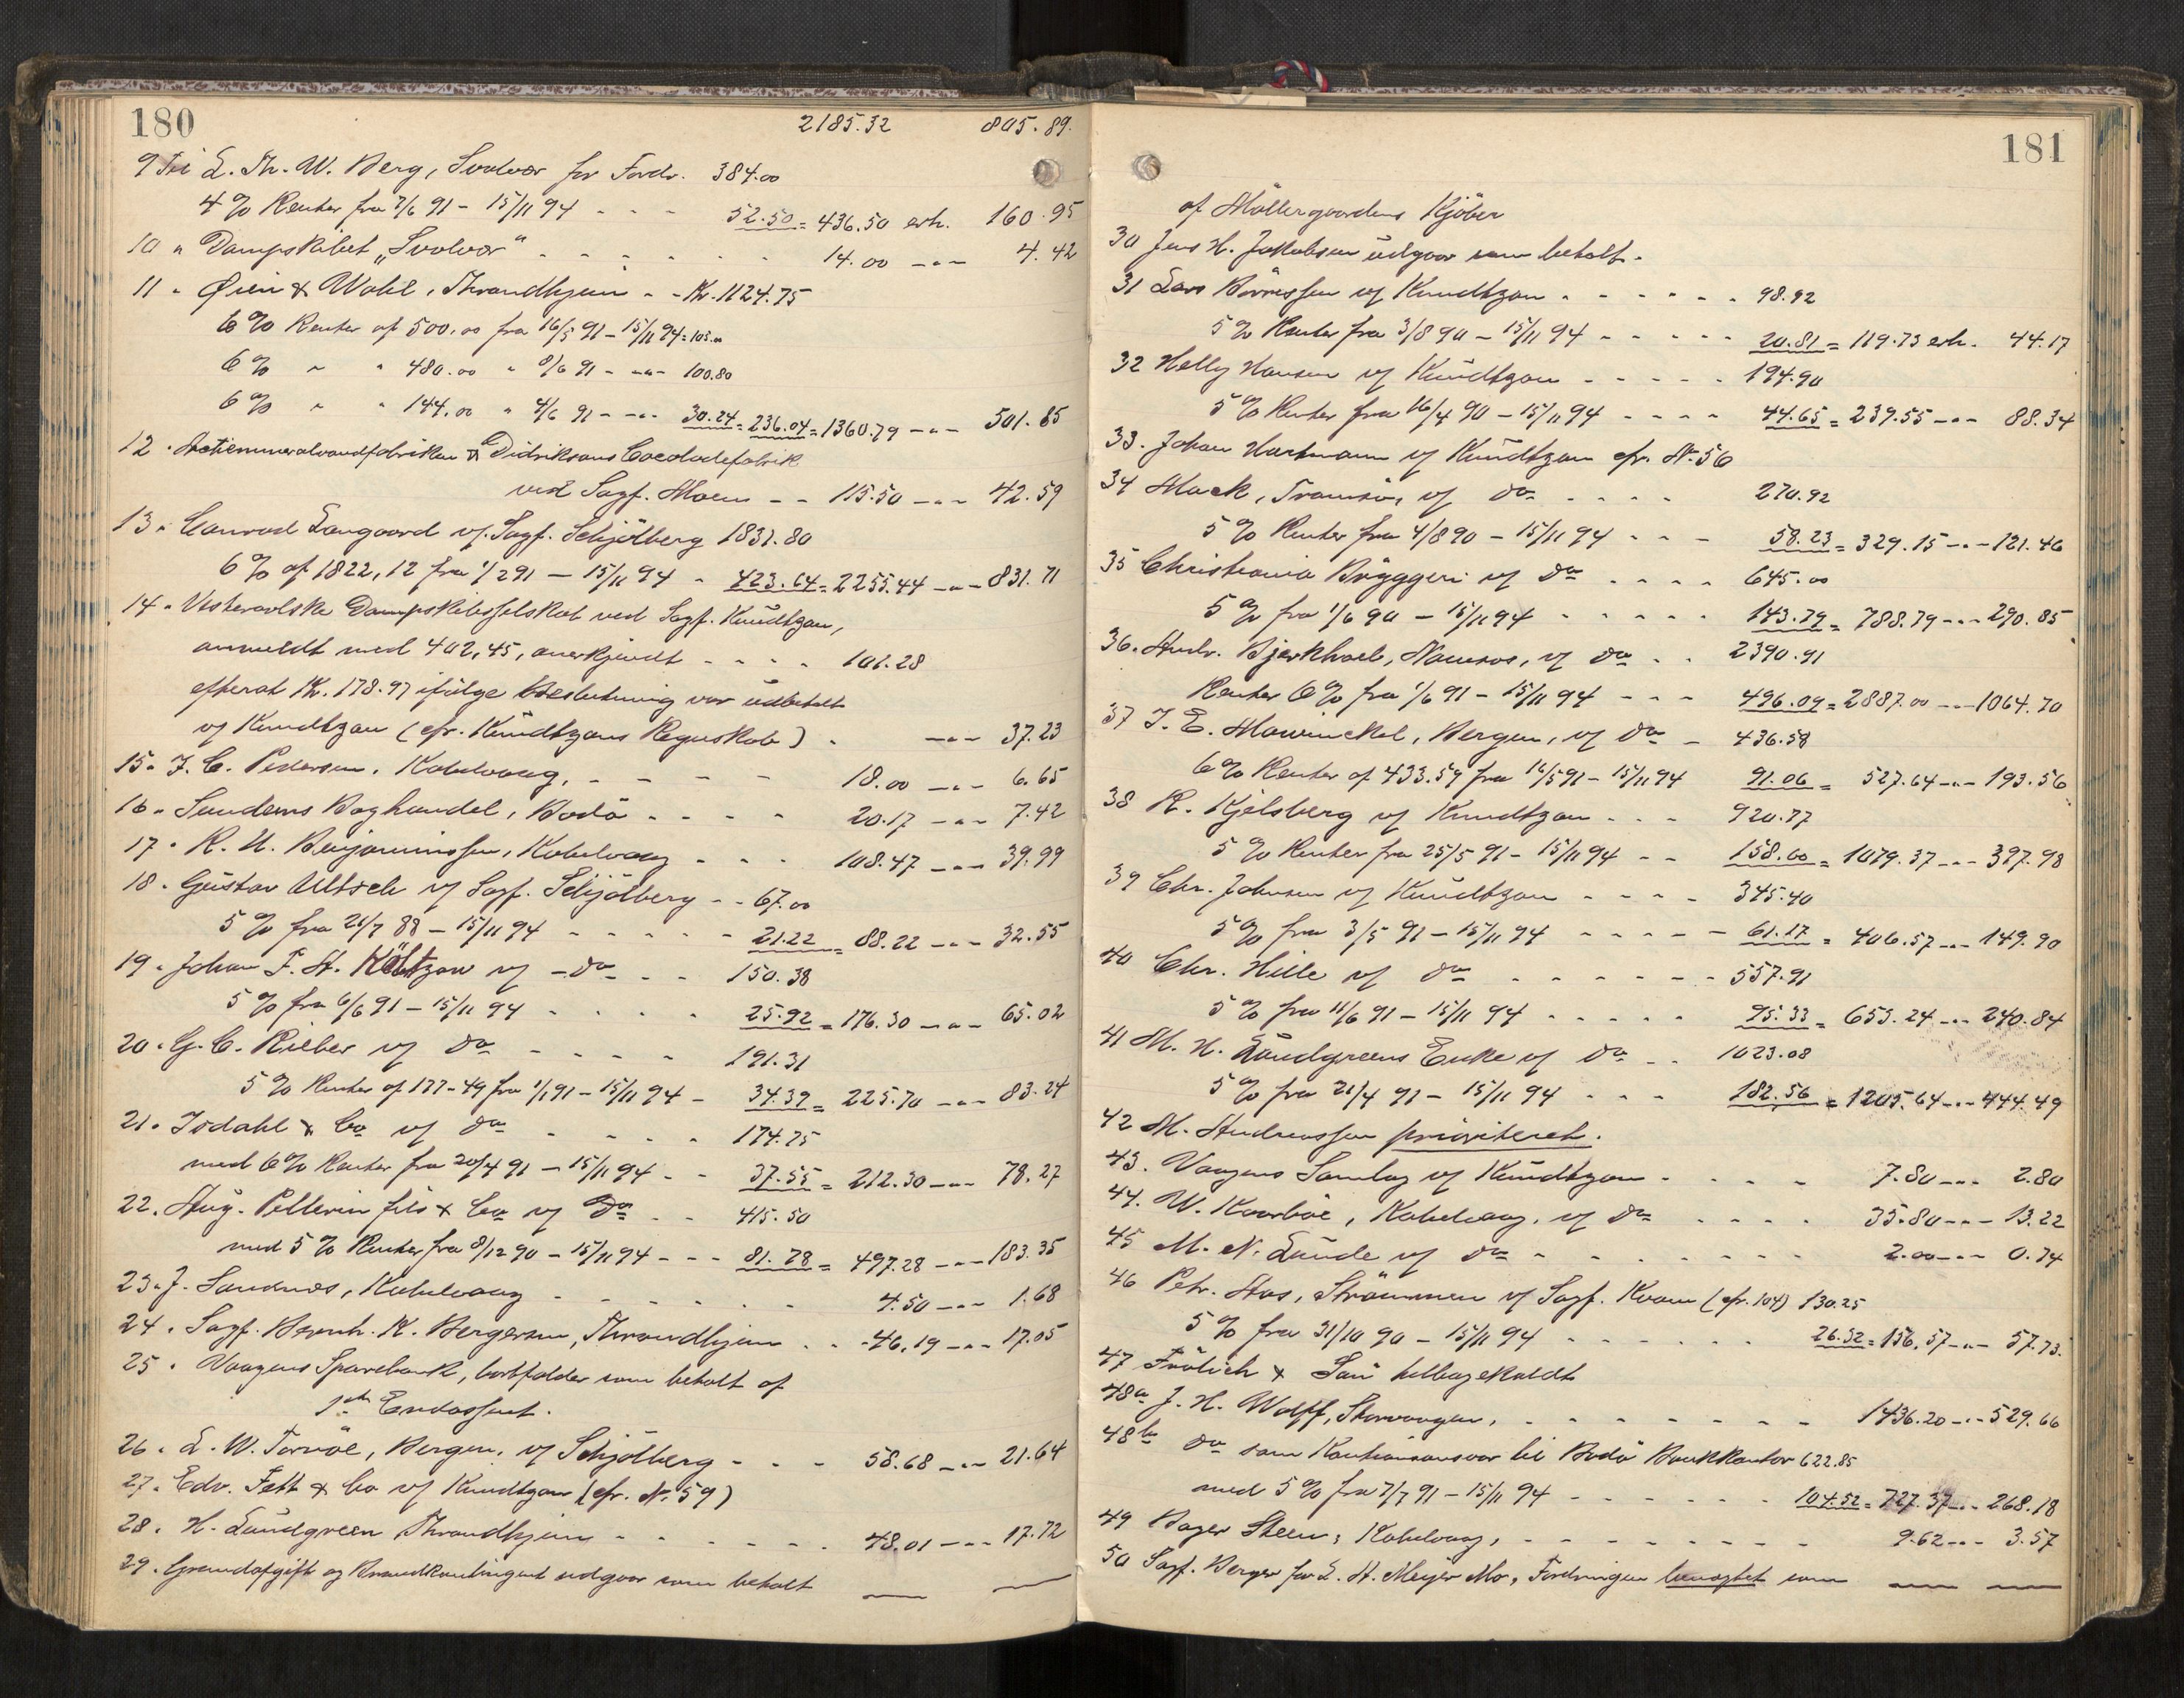 180
2185.32 805.89.
9 Til L. Th. W. Berg, Svolvær for Fordr. 384.00
4 % Renter fra 7/6 91 - 15/11 94 - - - 52.50 = 436.50 erh. 160.95
10 " Dampskibet "Svolvær" - - - - - - 14.00 -"- 4.42
11 " Øien & Wahl, Throndhjem - - Kr. 1124.75
6 % Renter af 500.00 fra 16/5 91 - 15/11 94 = 105.00
6 % " " 480.00 " 8/6 91 - -"- 100.80
6 % " " 144.00 " 4/6 91 - -"- 30.24 = 236.04 = 1360.79 -"- 501.85
12 " Actiemineralvandfabriken & Didriksons Cocoladefabrik
ved Sagf. Moen - - 115.50 -"- 42.59
13 " Conrad Langaard v/ Sagf. Schjölberg 1831.80
6 % af 1822,12 fra 1/2 91 - 15/11 94 - 423.64 = 2255.44 -"- 831.71
14 " Vesteraalske Dampskibsselskab ved Sagf. Knudtzon,
anmeldt med 402,45, anerkjendt - - - - 101.28
efterat Kr. 178.97 ifølge Beslutning var udbetalt
v/ Knudtzon (cfr. Knudtzons Regnskab) - -"- 37.23
15 " J. C. Pedersen, Kabelvaag, - - - - 18.00 -"- 6.65
16 " Sundems Boghandel, Bodö - - - - 20.17 -"- 7.42
17 " R. U. Benjaminssen, Kabelvaag - - - 108.47 -"- 39.99
18 " Gustav Ultsch v/ Sagf. Schjölberg - - 67.00
5 % fra 21/7 88 - 15/11 94 - - - - - 21.22 = 88.22 -"- 32.55
19 " Johan F. A. Költzow v/ - do - - 150.38
5 % fra 6/6 91 - 15/11 94 - - - - 25.92 = 176.30 -"- 65.02
20 " G. C. Rieber v/ do - - - - 191.31
5 % Renter af 177-49 fra 1/1 91 - 15/11 94 - 34.39 = 225.70 -"- 83.24
21 " Isdahl & Co v/ do - - - - 174.75
med 6 % Renter fra 20/4 91 - 15/11 94 - - 37.55 = 212.30 -"- 78.27
22. Aug. Pellerin fils & Co v/ do - - 415.50
med 5 % Renter fra 8/12 90 - 15/11 94 - - - 81.78 = 497.28 -"- 183.35
23 " J. Sandnes, Kabelvaag - - - - - - 4.50 -"- 1.68
24 " Sagf. Bernh. K. Bergersen, Throndhjem - - - 46.19 -"- 17.05
25 " Vaagens Sparebank, bortfalder som betalt af
1ste Endossent.
26 " L. W. Tornöe, Bergen, v/ Schjölberg - - - 58.68 -"- 21.64
27 " Edv. Fett & Co v/ Knudtzon (cfr. N. 59)
28 " H. Lundgreen Throndhjem - - - - - - 48.01 -"- 17.72
29 " Grundafgift og Brandkontingent udgaar som betalt — —
181
af Möllergaardens Kjöber
30 Jens H. Jakobsen udgaar som betalt.
31 Lars Börressen v/ Knudtzon - - - - - - 98.92
5 % Renter fra 3/8 90 - 15/11 94 - - - - - 20.81 = 119.73 erh. 44.17
32 Helly Hansen v/ Knudtzon - - - - - 194.90
5 % Renter fra 16/4 90 - 15/11 94 - - - - 44.65 = 239.55 -"- 88.34
33. Johan Hartmann v/ Knudtzon cfr. N. 56
34 Mack, Tromsö, v/ do - - - - 270.92
5 % Renter fra 4/8 90 - 15/11 94 - - - 58.23 = 329.15 -"- 121.46
35 Christiania Bryggeri v/ do - - - - 645.00
5 % fra 1/6 90 - 15/11 94 - - - - - 143.79 = 788.79 -"- 290.85
36. Andr. Bjerkhoel, Namsos, v/ do - - 2390.91
Renter 6 % fra 1/6 91 - 15/11 94 - - - 496.09 = 2887.00 -"- 1064.70
37 J. E. Mowinckel, Bergen, v/ do - 436.58
6 % Renter af 433.59 fra 16/5 91 - 15/11 94 91.06 = 527.64 -"- 193.56
38 R. Kjelsberg v/ Knudtzon - - - 920.77
5 % Renter fra 25/5 91 - 15/11 94 - - 158.60 = 1079.37 -"- 397.98
39 Chr. Johnsen v/ Knudtzon - - - - 345.40
5 % fra 3/5 91 - 15/11 94 - - - - - 61.17 = 406.57 -"- 149.90
40 Chr. Hille v/ do - - - - - - - 557.91
5 % fra 11/6 91 - 15/11 94 - - - - - 95.33 = 653.24 -"- 240.84
41 M. H. Lundgreens Enke v/ do - - 1023.08
5 % fra 21/4 91 - 15/11 94 - - - 182.56 = 1205.64 -"- 444.49
42 M. Andreassen prioriteret.
43. Vaagens Samlag v/ Knudtzon - - - - 7.80 -"- 2.80
44. W. Kaarböe, Kabelvaag, v/ do - - - - 35.80 -"- 13.22
45 M. N. Lunde v/ do - - - - - - - 2.00 -"- 0.74
46 Petr. Aas, Strömmen v/ Sagf. Kvam (cfr. 104) 130.25
5 % fra 31/10 90 - 15/11 94 - - - - - - 26.32 = 156.57 -"- 57.73.
47 Frölich & Sön tilbagekaldt
48a J. H. Wolff, Storvaagen, - - - - - - - 1436.20 -"- 529.66
48b do som Kautionsansvar til Bodö Bankkontor 622.85
med 5 % fra 7/7 91 - 15/11 94 - - - - - - 104.52 = 727.37 -"- 268.18
49 Bager Steen, Kabelvaag, - - - - - - - - 9.62 -"- 3.57
50 Sagf. Berger for L. H. Meyer Mo, Fordringen benegtet som — —